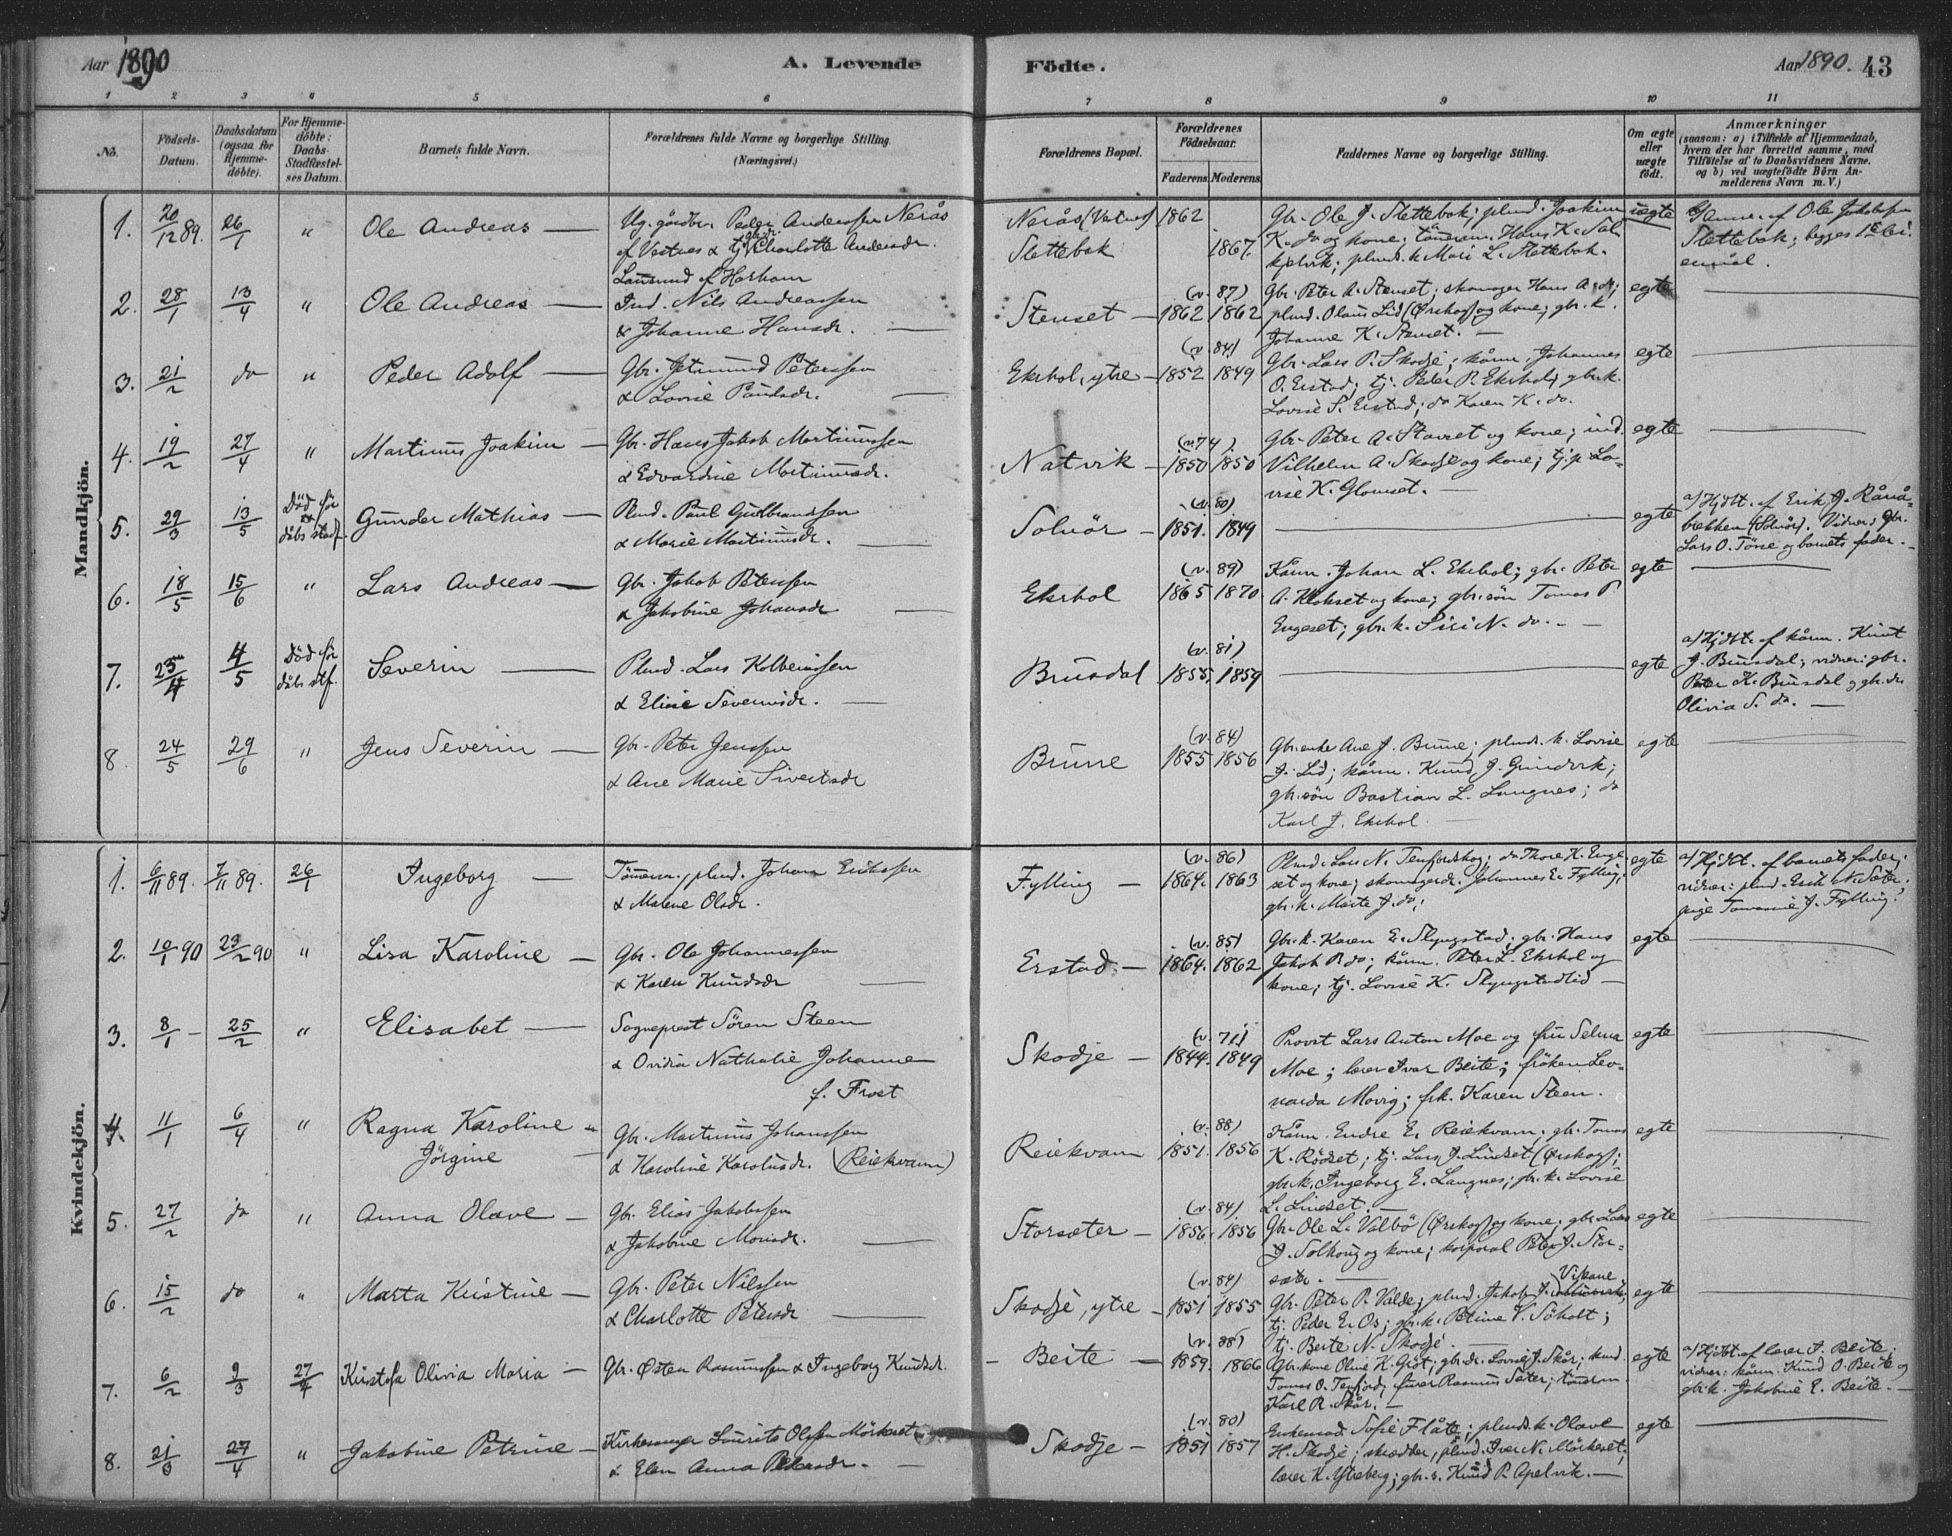 Aar 1890
A. Levende
Födte.
Aar 1890.
43
1 2 3 4 5 6
7 8 9 10 11
No.
Födsels-Datum.
Daabsdatum (ogsaa for Hjemme-döbte).
For Hjemme-döbte: Daabs-Stadfæstel-ses Datum.
Barnets fulde Navn.
Forældrenes fulde Navne og borgerlige Stilling. (Næringsvei.)
Forældrenes Bopæl.
Forældrenes Födselsaar.
Faderens. Moderens.
Faddernes Navne og borgerlige Stilling.
Om ægte eller uægte födt.
Anmærkninger
(saasom: a) i Tilfælde af Hjemmedaab, hvem der har forrettet samme, med Tilföielse af to Daabsvidners Navne, og b) ved uægtefödte Börn An-melderens Navn m. V.)
Mandkjön.
1. 20/12 89. 26/1 " Ole Andreas —
Ug. gdbr. Peder Anderssen Nerås
af Vestnes & tj. Charlotte Andersdr.
Lausund af Harham
Nerås (Vestnes) 1862
Slettebak 1867.
Gbr. Ole J. Slettebak; plmd. Joakim
K. do og kone; tömerm. Hans K. Sal-
kjelvik; plmd. k. Mari L. Slettebak.
uægte
b) Anm. af Ole Jakobsen
Slettebak; begges 1ste lei-
ermål.
2. 28/1 13/4 " Ole Andreas —
Ind. Nils Andreassen
& Johanne Hansdr. —
Stenset — (v. 87) 1862 1862
Gbr. Peter A. Stenset; skomager Hans A. do;
plmd. Olaus Lid (Ørskog) og kone; gbr. k.
Johanne K. Stenset. —
egte
3. 21/2 do " Peder Adolf —
Gbr. Jetmund Peterssen
& Lovise Paulsdr. —
Ekrhol, ytre — (v. 84) 1852 1849
Gbr. Lars P. Skodje; kårm. Johannes
O. Erstad; tj. Peter P. Ekrhol; gbr. k.
Lovise S. Erstad; do Karen K. do.
egte
4. 19/2 27/4 " Martinus Joakim —
Gbr. Hans Jakob Martinussen
& Edvardine Martinusdr.
Natvik — (v. 74) 1850 1850
Gbr. Peter A. Stavset og kone; ind.
Vilhelm A. Skodje og kone; tj. p. Lo-
vise K. Glomset. —
egte
5. 29/3 13/5 Död för dåbs stadf. Gunder Mathias —
Plmd. Paul Gulbrandsen
& Marie Martinusdr. —
Solnör — (v. 80) 1851. 1849
egte
a) Hjdbt. af Erik J. Rånå-
brekken (Solnör). Vidner: Gbr.
Lars O. Töse og barnets fader. —
6. 18/5 15/6 " Lars Andreas —
Gbr. Jakob Peterssen
& Jakobine Johansdr —
Ekrhol (v. 89) 1865 1870
Kårm. Johan L. Ekrhol; gbr. Peter
A. Klokset og kone; gbr. sön Tomas P.
Engeset; gbr. k. Siri N. do. —
egte
7. 25/4 4/5 Död för dåbs stf. Severin —
Plmd. Lars Kolbeinssen
& Eline Severinsdr. —
Brusdal (v. 81) 1855. 1859
egte
a) Hjdbt. af kårm. Knut
J. Brusdal; vidner: gbr.
Peter K. Brusdal og gbr. dr.
Olivia S. do. —
8. 24/5 29/6 " Jens Severin —
Gbr. Peter Jenssen
& Ane Marie Sivertsdr
Brune (v. 84) 1855 1856
Gbr. enke Ane J. Brune; plmd. k. Lovise
J. Lid; kårm. Knud J. Grindvik;
gbr. sön Bastian L. Langnes; do
Karl J. Ekrhol —
egte
Kvindekjön.
1. 6/11 89. 7/11 89. 26/1 Ingeborg —
Tömerm., plmd. Johan Erikssen
& Malene Olsdr.
Fylling — (v. 86) 1864. 1863
Plmd. Lars N. Tenfjordskog; do Thore K. Enge-
set og kone; skomagerdr. Johannes E. Fylling;
gbr. k. Marte J. do;
egte
a) Hjdbt. af barnets fader;
vidner: plmd. Erik N. Säter;
pige Tomasine J. Fylling.
2. 10/1 90 23/2 90 " Lisa Karoline —
Gbr. Ole Johannessen
& Karen Knudsdr —
Erstad. — (v. 85) 1864. 1862
Gbr. k. Karen E. Slyngstad; gbr. Hans
Jakob R. do; kårm. Peter L. Ekrhol og
kone; tj. Lovise K. Slyngstadlid —
egte
3. 8/1 — 25/2 " Elisabet —
Sogneprest Sören Steen
& Ovidia Nathalie Johanne
f. Frost
Skodje — (v. 71) 1844. 1849
Provst Lars Anton Moe og fru Selma
Moe; lærer Ivar Beite; fröken Leo-
narda Movig; frk. Karen Steen.
egte
4. 11/1 6/4 " Ragna Karoline
Jörgine —
Gbr. Martinus Johanssen
& Karoline Karolusdr. (Reiekvam)
Reiekvam (v. 88) 1851. 1856
Kårm. Endre E. Reiekvam; gbr. Tomas
K. Rödset; tj. Lars J. Lindset (Ørskog);
gbr. k. Ingeborg E. Langnes; gbr. k. Lovise
L. Lindset. —
egte
5. 27/2 do " Anna Olave —
Gbr. Elias Jakobssen
& Jakobine Monsdr. —
Storsæter — (v. 84) 1856. 1856
Gbr. Ole L. Valbö (Ørskog) og kone; gbr. Lars
J. Solhaug og kone; korporal Peter J. Stor-
sæter. —
egte
6. 15/2 do " Marta Kristine —
Gbr. Peter Nilssen
& Charlotte Petersdr —
Skodje, ytre — (v. 84) 1851 1855
Gbr. Peter P. Valde; plmd. Jakob J.
tj. Peder E. Os; gbr. k. Petrine V. Söholt;
tj. Berte N. Skodje —
egte
7. 6/2 9/3 27/4 Kristofa Olivia Maria —
Gbr. Østen Rasmussen & Ingeborg Knudsdr.
— Beite — (v. 88) 1859. 1866
Gbr. kone Oline K. Gröt; gbr. dr. Lovise J. Skår; ind.
Tomas O. Tenfjord; Rasmus Säter; tömerm.
Karl R. Skår. —
egte
a) Hjdbt. af lærer I. Beite;
vidner: kårm. Knud O. Beite og
gbr. k. Jakobine E. Beite. —
8. 21/3 27/4 " Jakobine Petrine —
Kirkesanger Laurits Olssen Mörkeset
& Elen Anna Pedersdr. —
Skodje — (v. 80) 1851 1857
Enkemad. Sofie Flåte; plmd. k. Olave
H. Skodje; skrædder, plmd. Iver N. Mörkeset;
lærer K. Ytreberg; gbr. s. Knud P. Apelvik. —
egte